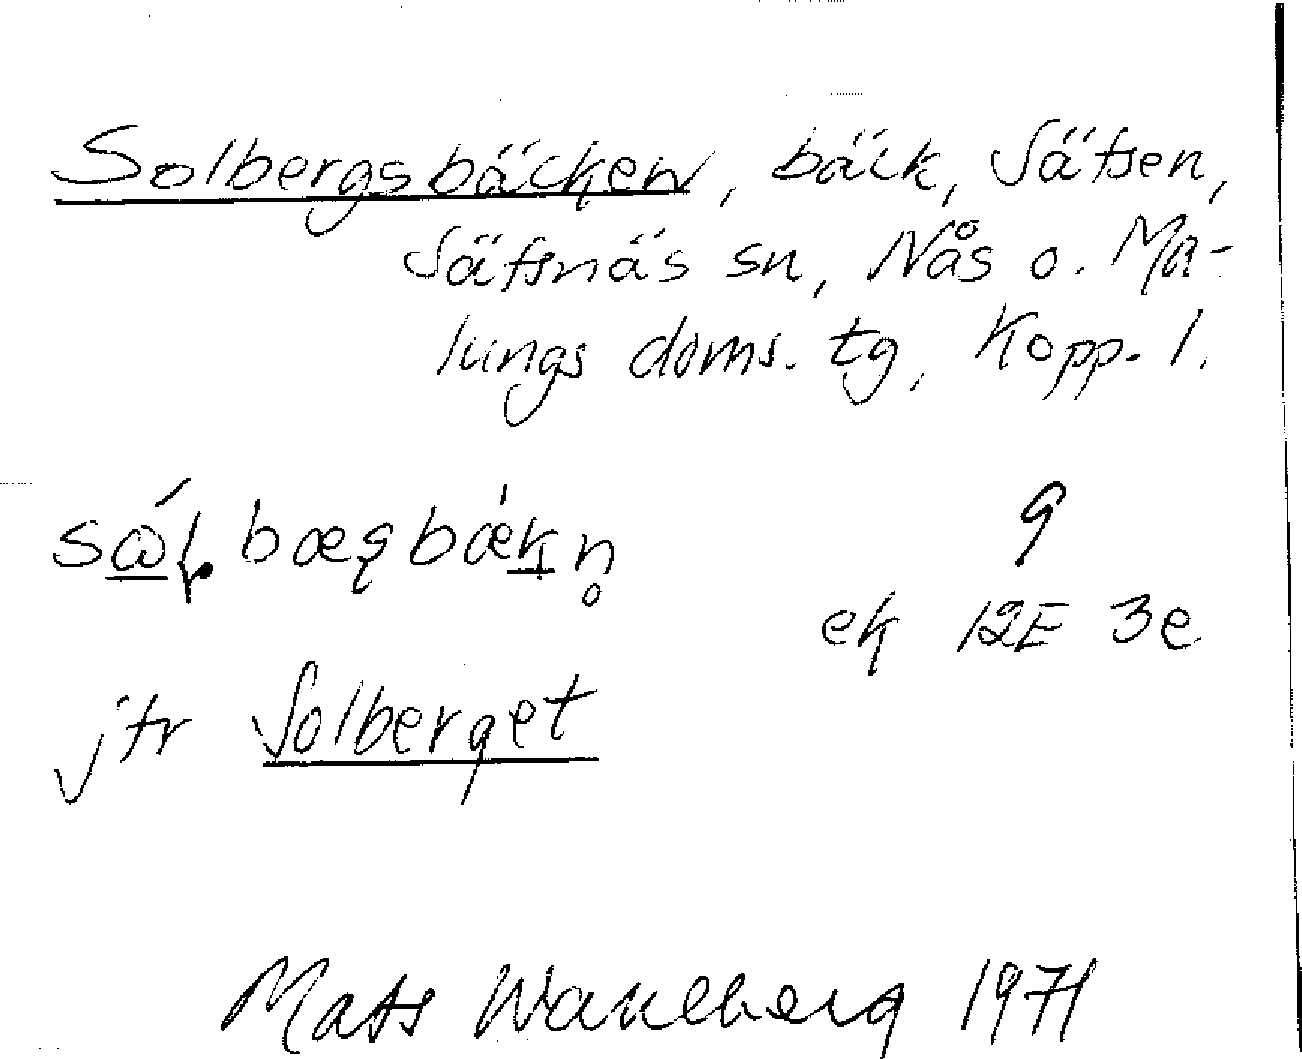 Solbergsbäcken, bäck, Sätsen,
Sätsnäs sn, Nås o. Ma-
lungs doms. tg, Kopp. l.
9
ek 12E 3e
jfr Solberget
Mats Wahlberg 1971